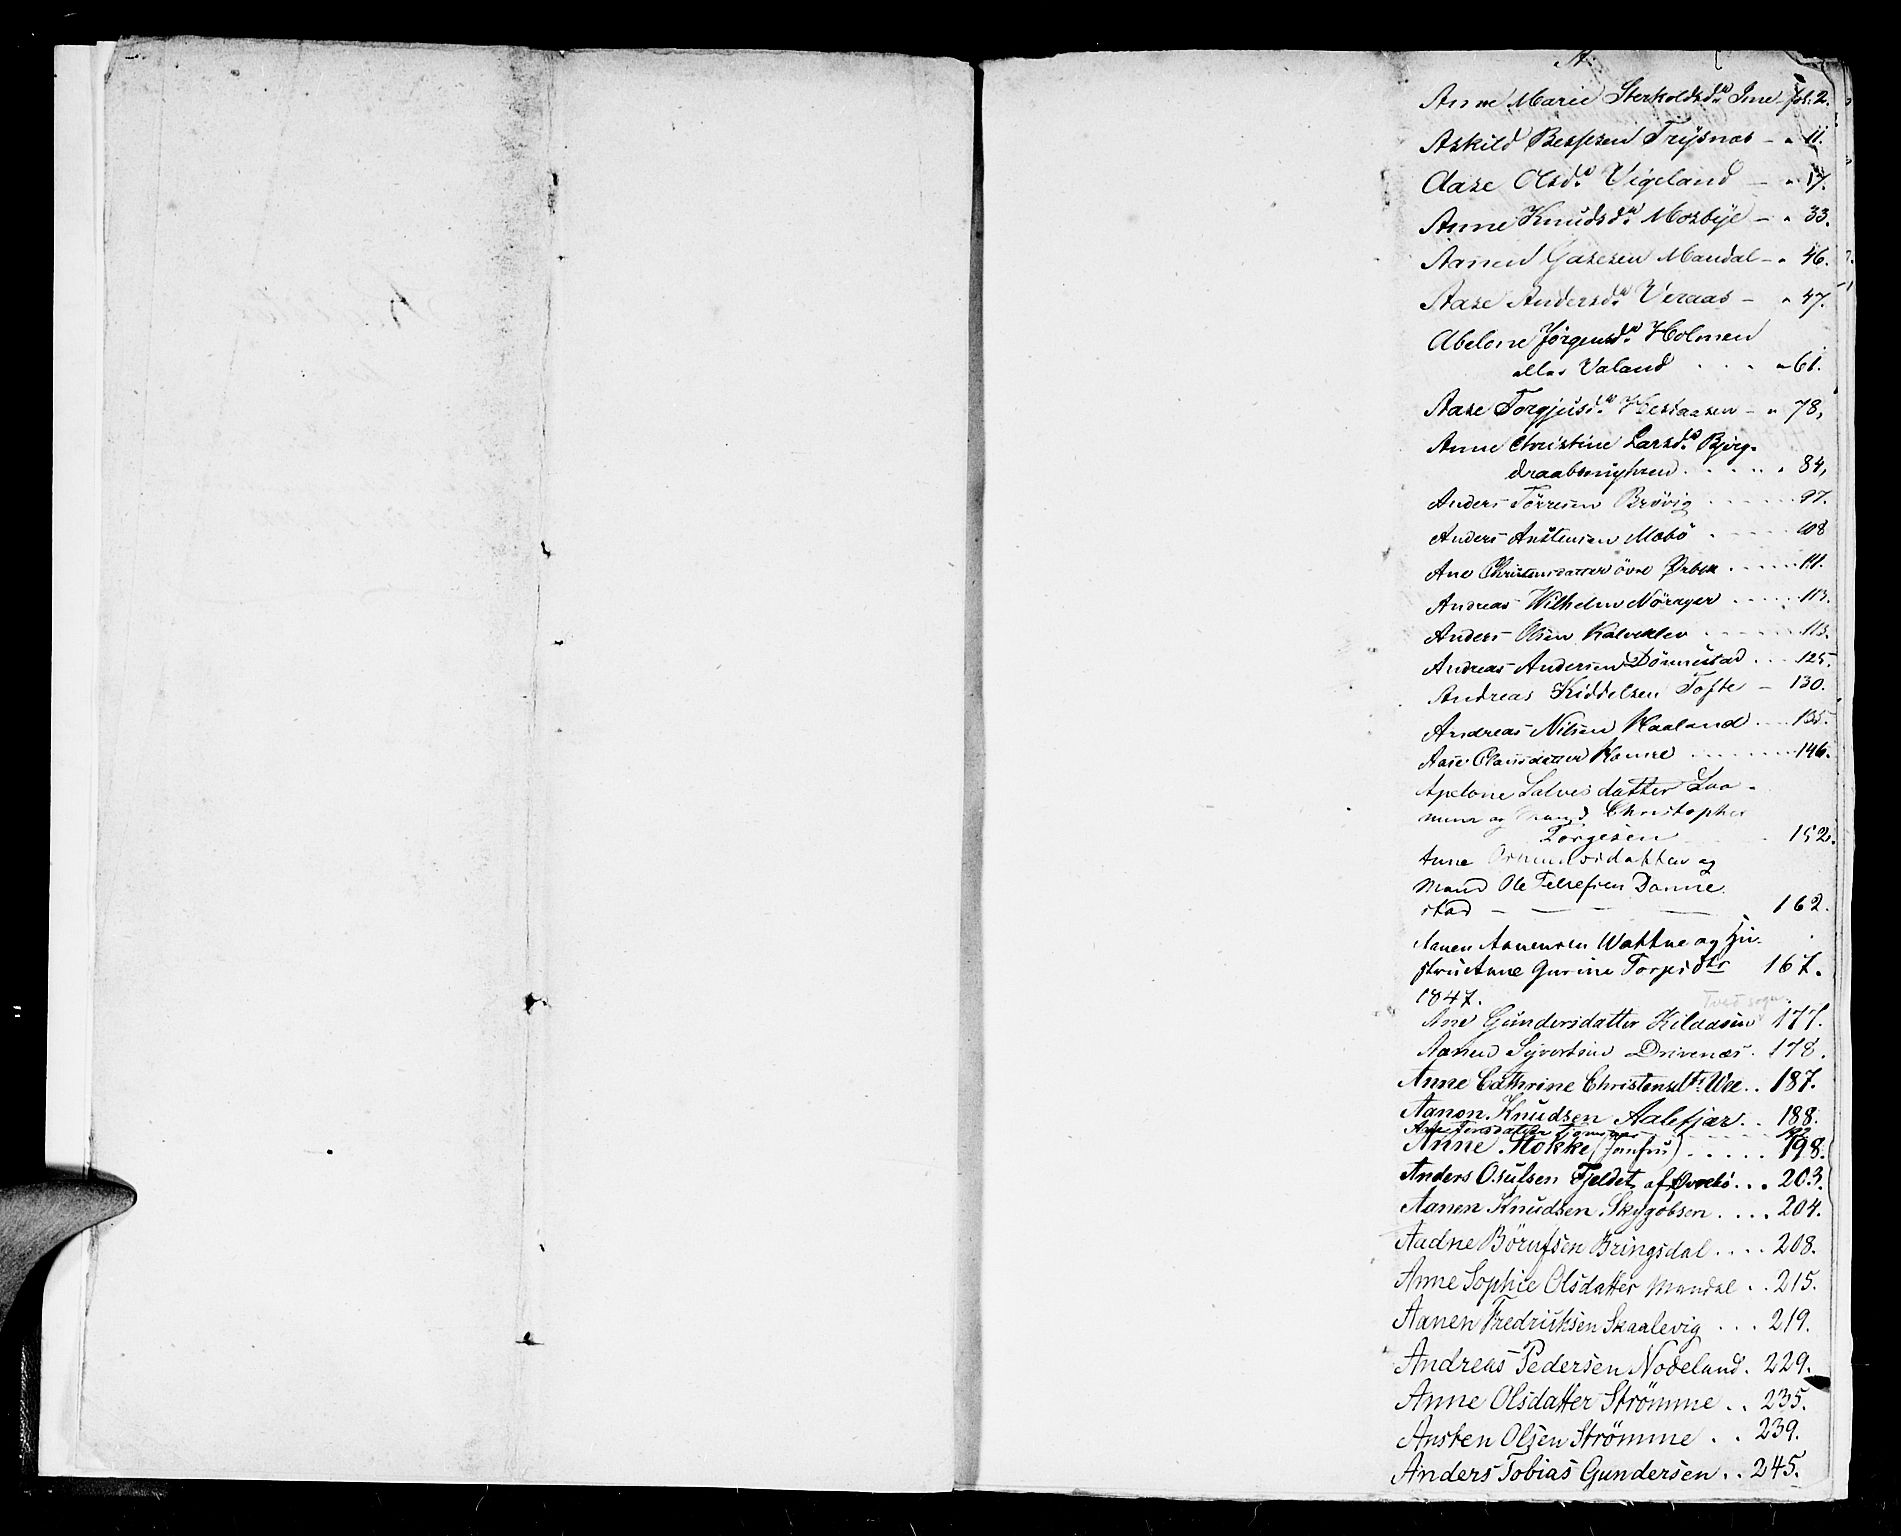 A.
Anne Marie Sterkoldsd. Ime fol. 2.
Askild Bessesen Trysnes - " 11.
Aase Olsd. Vigeland - " 17.
Anne Knudsd. Mosbye - " 33.
Aanen Gasesen Mandal - " 46.
Aase Andersd. Veraas - " 47.
Abelone Jørgensd. Holmen
eller Valand . . . " 61.
Aase Torgjusd. - " 78,
Anne Christine Larsd. Bjerg-
draabsmyhren . . . . " 84,
Anders Tørresen Brøvig . . . . 97.
Anders Austensen Mebö . . . . 108
Ane Christensdatter övre Øebek . . . . 111.
Andreas Wilhelm Nörager . . . . 113.
Anders Olsen Kalveklev . . . . 113.
Andreas Andersen Dönnestad . . . 125.
Andreas Kiddelsen Tofte - 130.
Andreas Nilsen Haaland . . . 135.
Aase Clausdatter Homme . . . . 146.
Apelone Salvesdatter Lau-
og Mand Christopher
Torgesen . 152.
Anne datter og
Mand Ole Tellefsen Danne
stad - - - 162.
Aanen Aanensen Wattne og Hu-
stru Anne Gurine Torjesdtr 167.
1847. Tved sogn
Ane Gundersdatter Kilaasen 177.
Aanen Syvertsen Drivenæs. 178.
Anne Cathrine Christensdtr. Wee . . 187.
Aanon Knudsen Aalefjær . . 188.
Anne Stokke (Jomfru) . . . . . 198.
Anders Osulsen Fjeldet af Øvrebö . . . 203.
Aanen Knudsen Skygebsen . . . . 204.
Aadne Börufsen Bringsdal . . . . 208.
Anne Sophie Olsdatter Mandal . . 215.
Aanen Fredriksen Skaalevig . . . 219.
Andreas Pedersen Nodeland . 229.
Anne Olsdatter Strömme . . 235.
Austen Olsen Strömme . . 239.
Anders Tobias Gundersen . . 245.